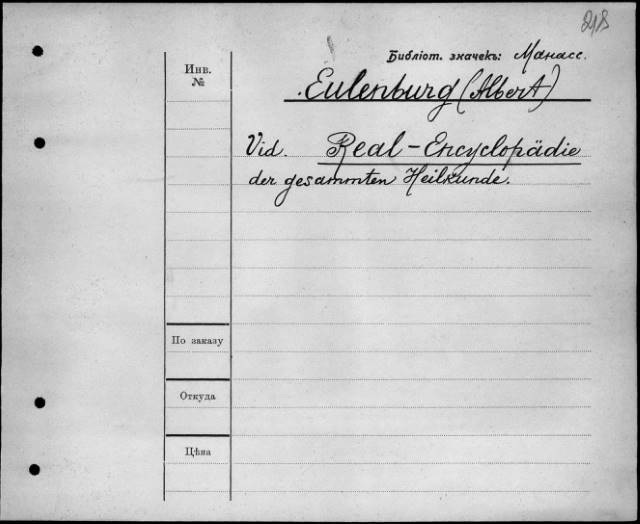 218
Библіот. значекъ: Манасс.
Инв.
№
Eulenburg (Albert)
Vid. Real-Encyclopädie
der gesammten Heilkunde.
По заказу
Откуда
Цѣна